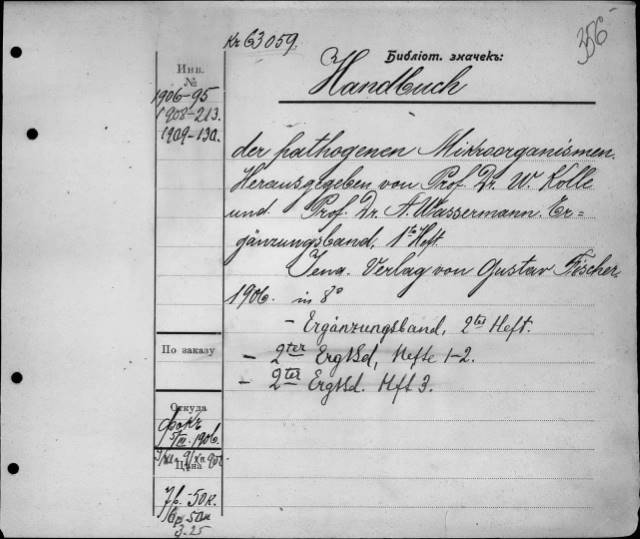 Кк 63059.
356
Библіот. значекъ:
Handbuch
Инв.
№
1906-95
1908-213.
1909-130.
der pathogenen Mikroorganismen.
Herausgegeben von Prof. Dr. W. Kolle
und Prof. Dr. A. Wassermann. Er=
gänzungsband, 1tes Heft.
Jena. Verlag von Gustav Fischer.
1906. in 8°
- Ergänzungsband, 2tes Heft.
По заказу
- 2ter ErgBd, Hefte 1-2.
- 2ter ErgBd. Hft 3.
Откуда
Фокъ
1906.
Цѣна
7р.-50к.
50к
3.25